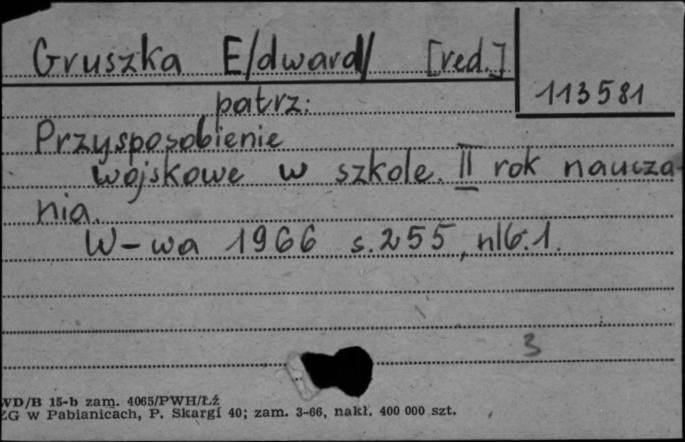 Gruszka E/dward/ [red.]
113581
patrz:
Przysposobienie
wojskowe w szkole. II rok naucza-
nia.
W-wa 1966 s.255, nlb.1.
3
WD/B 15-b zam. 4065/PWH/Łż
ZG w Pabianicach, P. Skargi 40; zam. 3-66, nakł. 400 000 szt.